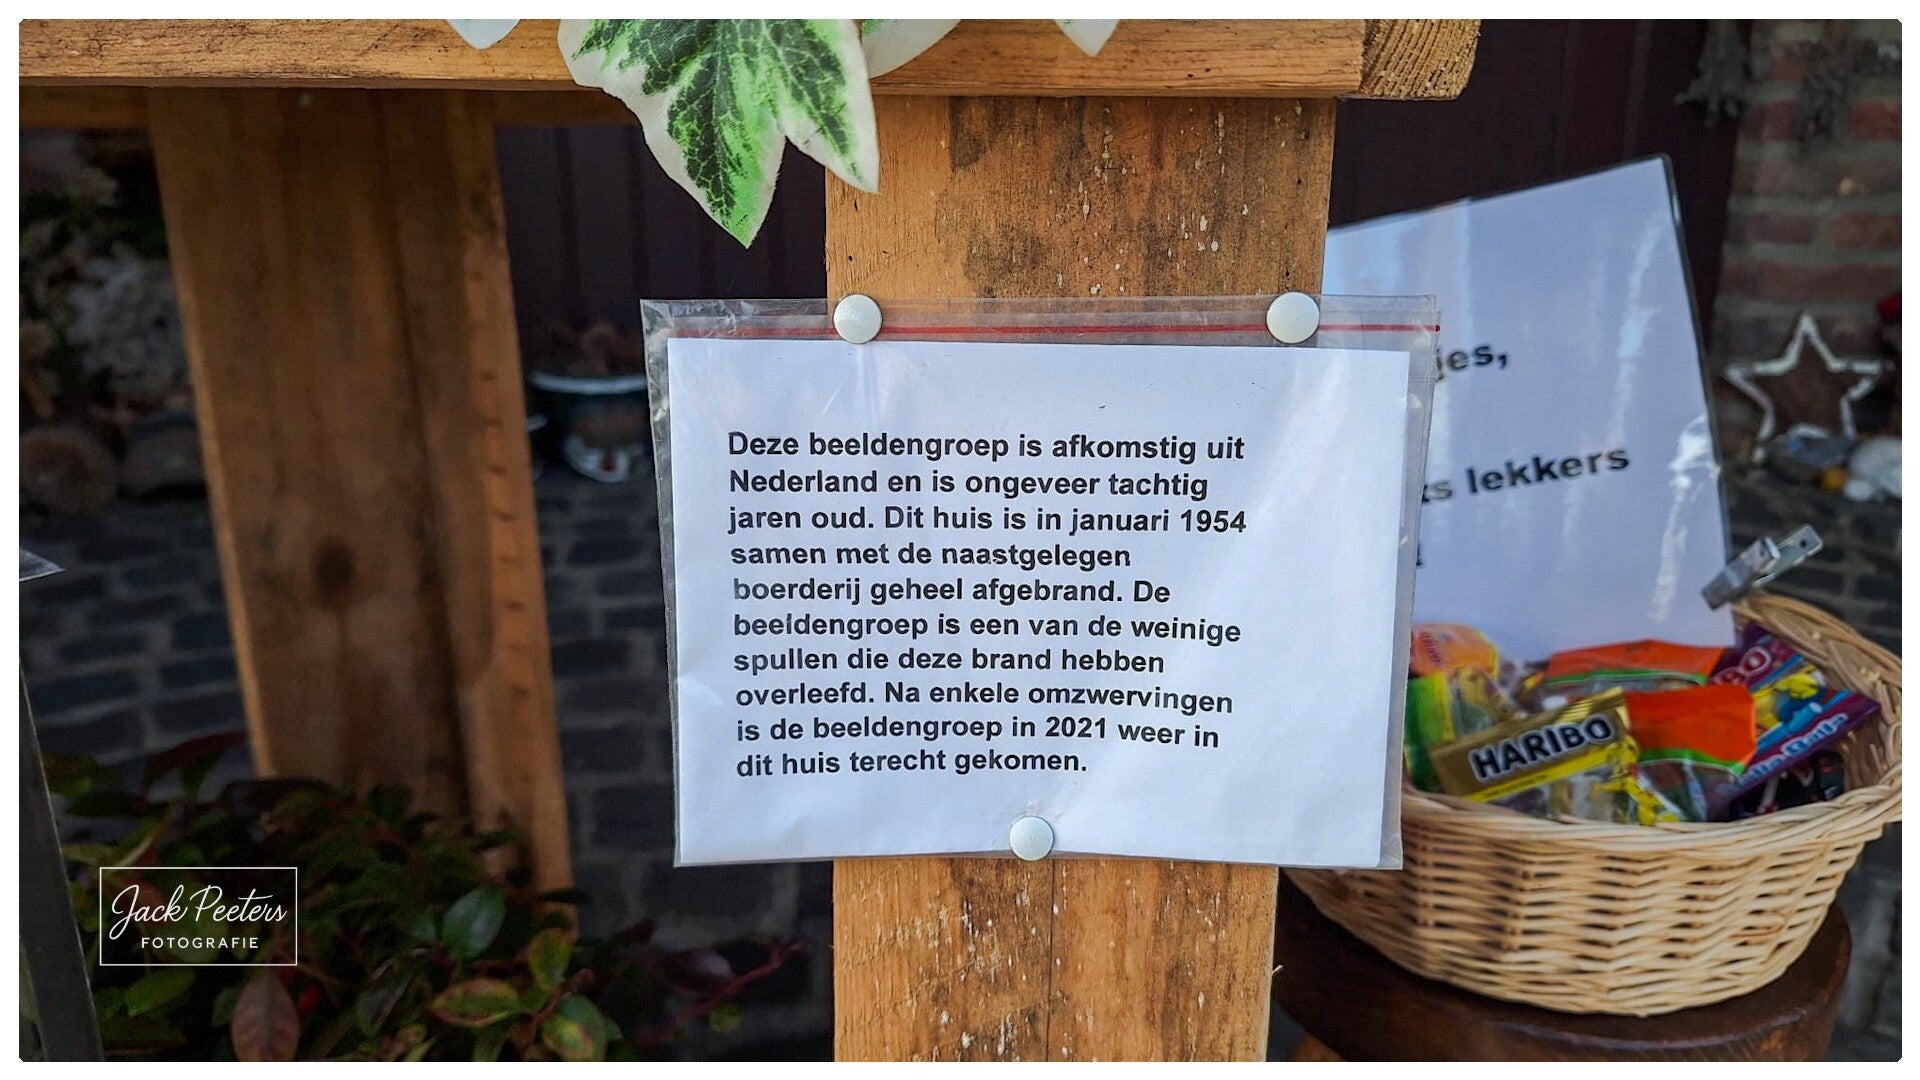 Deze beeldengroep is afkomstig uit
Nederland en is ongeveer tachtig
jaren oud. Dit huis is in januari 1954
samen met de naastgelegen
boerderij geheel afgebrand. De
beeldengroep is een van de weinige
spullen die deze brand hebben
overleefd. Na enkele omzwervingen
is de beeldengroep in 2021 weer in
dit huis terecht gekomen.
lekkers
HARIBO
Jack Peeters
FOTOGRAFIE